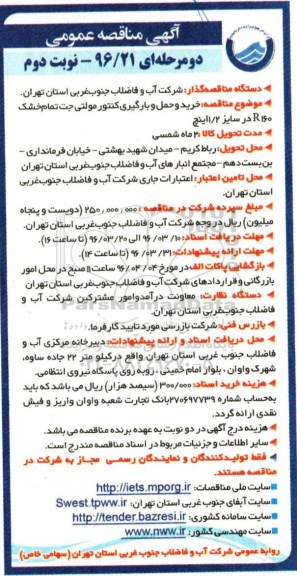 آگهی مناقصه عمومی
دومرحله‌ای ۹۶/۲۱ – نوبت دوم
دستگاه مناقصه‌گذار: شرکت آب و فاضلاب جنوب‌غربی استان تهران.
موضوع مناقصه: خرید و حمل و بارگیری کنتور مولتی جت تمام‌خشک
R۱۶۰ در سایز ۱/۲ اینچ
مدت تحویل کالا: ۲ ماه شمسی
محل تحویل: رباط کریم – میدان شهید بهشتی – خیابان فرمانداری –
بن‌بست دهم – مجتمع انبار های آب و فاضلاب جنوب‌غربی استان تهران
محل تامین اعتبار: اعتبارات جاری شرکت آب و فاضلاب جنوب‌غربی
استان تهران.
مبلغ سپرده شرکت در مناقصه: ۲۵۰,۰۰۰,۰۰۰ (دویست و پنجاه
میلیون) ریال در وجه شرکت آب و فاضلاب جنوب‌غربی استان تهران.
مهلت دریافت اسناد: ۹۶/۰۳/۱۰ الی ۹۶/۰۳/۲۰ (تا ساعت ۱۶).
مهلت ارائه پیشنهادات: ۹۶/۰۳/۳۱ (تا ساعت ۱۴).
بازگشایی پاکات الف در مورخ ۹۶/۰۴/۰۴ ساعت ۱۱ صبح در محل امور
بازرگانی و قراردادهای شرکت آب و فاضلاب جنوب‌غربی استان تهران
دستگاه نظارت: معاونت درآمد و امور مشترکین شرکت آب و
فاضلاب جنوب‌غربی استان تهران
بازرس فنی: شرکت بازرسی مورد تایید کارفرما.
محل دریافت اسناد و ارائه پیشنهادات: دبیرخانه مرکزی آب و
فاضلاب جنوب غربی استان تهران واقع در کیلو متر ۲۲ جاده ساوه،
شهرک واوان، بلوار امام خمینی، روبه روی پاسگاه نیروی انتظامی.
هزینه خرید اسناد: ۳۰۰/۰۰۰ (سیصد هزار) ریال می باشد که باید
به‌حساب شماره ۲۷۰۶۹۷۷۳۹ بانک تجارت شعبه واوان واریز و فیش
نقدی ارائه گردد.
هزینه درج آگهی در دو نوبت به عهده برنده مناقصه می باشد.
سایر اطلاعات و جزئیات مربوط در اسناد مناقصه مندرج است.
فقط تولیدکنندگان و نمایندگان رسمی مجاز به شرکت در
مناقصه هستند.
سایت ملی مناقصات: http://iets.mporg.ir
سایت آبفای جنوب غربی استان تهران: Swest.tpww.ir
سایت سامانه کشوری: http://tender.bazresi.ir
سایت مهندسی کشور: www.nww.ir
روابط عمومی شرکت آب و فاضلاب جنوب غربی استان تهران (سهامی خاص)